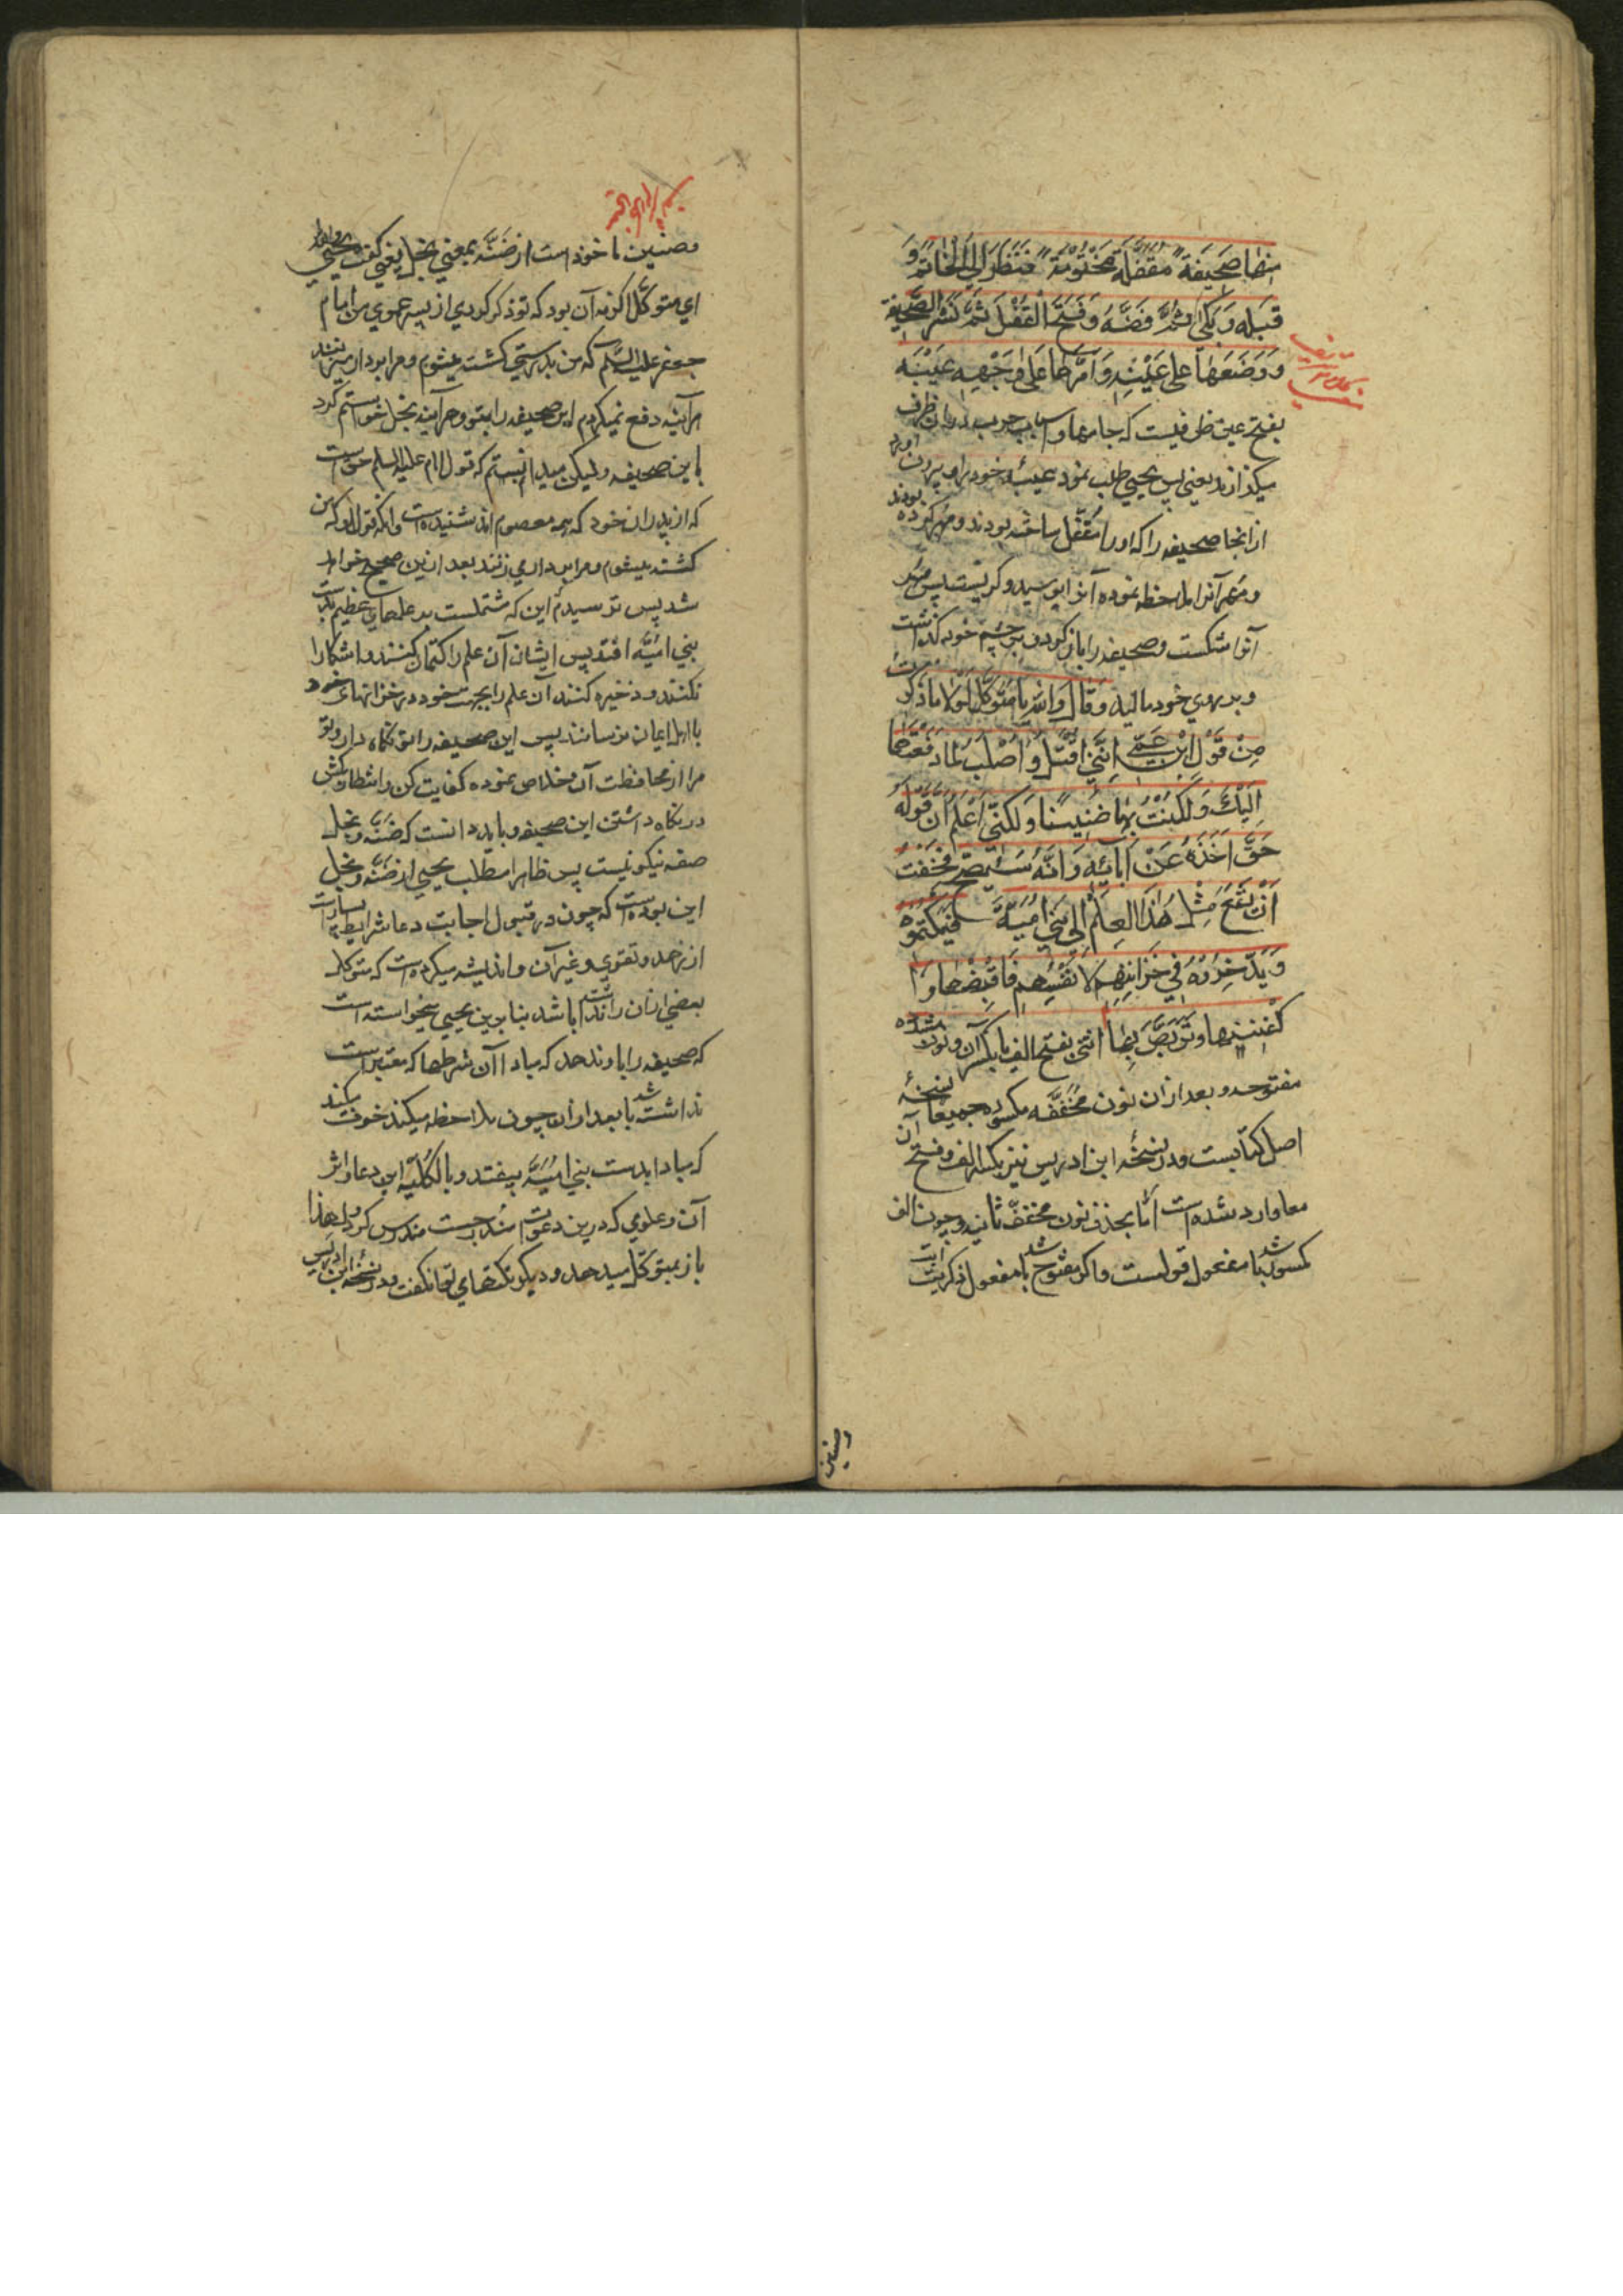 منها صَحِيفَةً مُقْفَلَةً مَخْتُوْمَةً فَنَظَرَ اِلَى الْخَاتَمِ وَ
قَبَّلَه وَ بَكٰى ثُمَّ فَضَّهُ وَ فَتَحَ الْقُفْلَ ثُمَّ نَشَرَ الصَّحِيفَة
وَ وَضَعَهَا عَلى عَيْنِهِ وَ اَمَرَّهَا عَلٰى وَجْهِهِ عَيْبَه
بفتح عین ظرفیست که جامها و اسباب خوب در ان ظرف
میکذارند یعنی پس یحیی طلب نمود عیبهٔ خود را و بیرون اورد
از انجا صحیفه را که او را مُقَفَّل ساخته بودند و مهر کرده بودند
و مهر آنرا ملاحظه نموده آنرا بوسید و کریست پس مهر
آنرا شکست و صحیفه را باز کرد و بر چشم خود کذاشت
و بر روی خود مالید وَ قَالَ وَ اللهِ يَا مُتَوَكِّلُ لَوْلَا مَا ذَكَرْتَ
مِنْ قَوْلِ ابْنِ عَمِّي اِنَّنِي اُقْتَلُ وَ اُصْلَبُ لَمَا دَفَعْتُهَا
اِلَيْكَ وَ لَكُنْتُ بِهَا ضَنِيْنًا وَ لٰكِنِّي اَعْلَمُ اَنَّ قَوْلَهُ
حَقٌّ اَخَذَهُ عَنْ اٰبَائِهِ وَ اَنَّهُ سَيَصِحُّ فَخِفْتُ
اَنْ يَقَعَ مِثْلُ هٰذَا الْعِلْمِ اِلٰى بَنِي اُمَيَّةَ فَيَكْتُمُوْهُ
وَ يَدَّخِرُوْهُ فِي خَزَائِنِهِمْ لِاَنْفُسِهِمْ فَاقْبِضْهَا وَ ا
كْفِنِيْهَا وَ تَرَبَّصْ بِهَا اننی بفتح الف یا بکسر آن و نون مشدده
مفتوحه و بعد از ان نون مُخَفَّفَه مکسوره جمیعا نسخهٔ
اصل کتابست و در نسخهٔ ابن ادریس نیز بکسر الف و فتح آن
معا وارد شده است امّا بحذف نون مخفف ثانیه و چون الف
مکسور باشد مفعول قولست و اکر مفتوح باشد مفعول ذکرتست
وضنین
وضنین ماخوذ است از ضَنَّه بمعنی بخل یعنی کفت یحیی والله
ای متوکّل اکر نه آن بود که تو ذکر کردی از پسر عموی من امام
جعفر علیه السّلم که من بدرستی کشته میشوم و مرا بردار میزنند
هر آینه دفع نمیکردم این صحیفه را بتو و هر آینه بخل خواستم کرد
باین صحیفه و لیکن میدانستم که قول امام علیه السلم حق است
که از پدران خود که همه معصوم اند شنیده است و انکه قول او که من
کشته میشوم و مرا بر دار می زنند بعد ازین صحیح خواهد
شد پس ترسیدم این که مشتملست بر علمهای عظیم بدست
بنی امیّه افتد پس ایشان آن علم را کتمان کنند و اشکارا
نکنند و ذخیره کنند آن علم را بجهت خود در خزانهای خود
باهل ایمان نرسانند پس این صحیفه را تو نکاه دار و تو
مرا از محافظت آن خلاص نموده کفایت کن و انتظار بکش
در نکاه داشتن این صحیفه و باید دانست که ضَنَّه و بخل
صفه نیکو نیست پس ظاهرا مطلب یحیی از ضَنَّه و بخل
این بوده است که چون در قبول اجابت دعا شرایط بسیار است
از زهد و تقوی و غیر آن و اندیشه میکرده است که متوکل
بعضی از ان را نداشته باشد بنابرین یحیی نمیخواسته است
که صحیفه را باو ندهد که مبادا آن شرطها که معتبر است
نداشته باشد بعد از ان چون ملاحظه میکند خوف میکند
که مبادا بدست بنی امیّه بیفتد و بالکُلیّه این دعا و اثر
آن و علومی که درین دعوت مندرجست مندرس کردد لهذا
باز بمتوکّل میدهد و دیکر نکتهای تو انکفت و در نسخه ابن ادریس